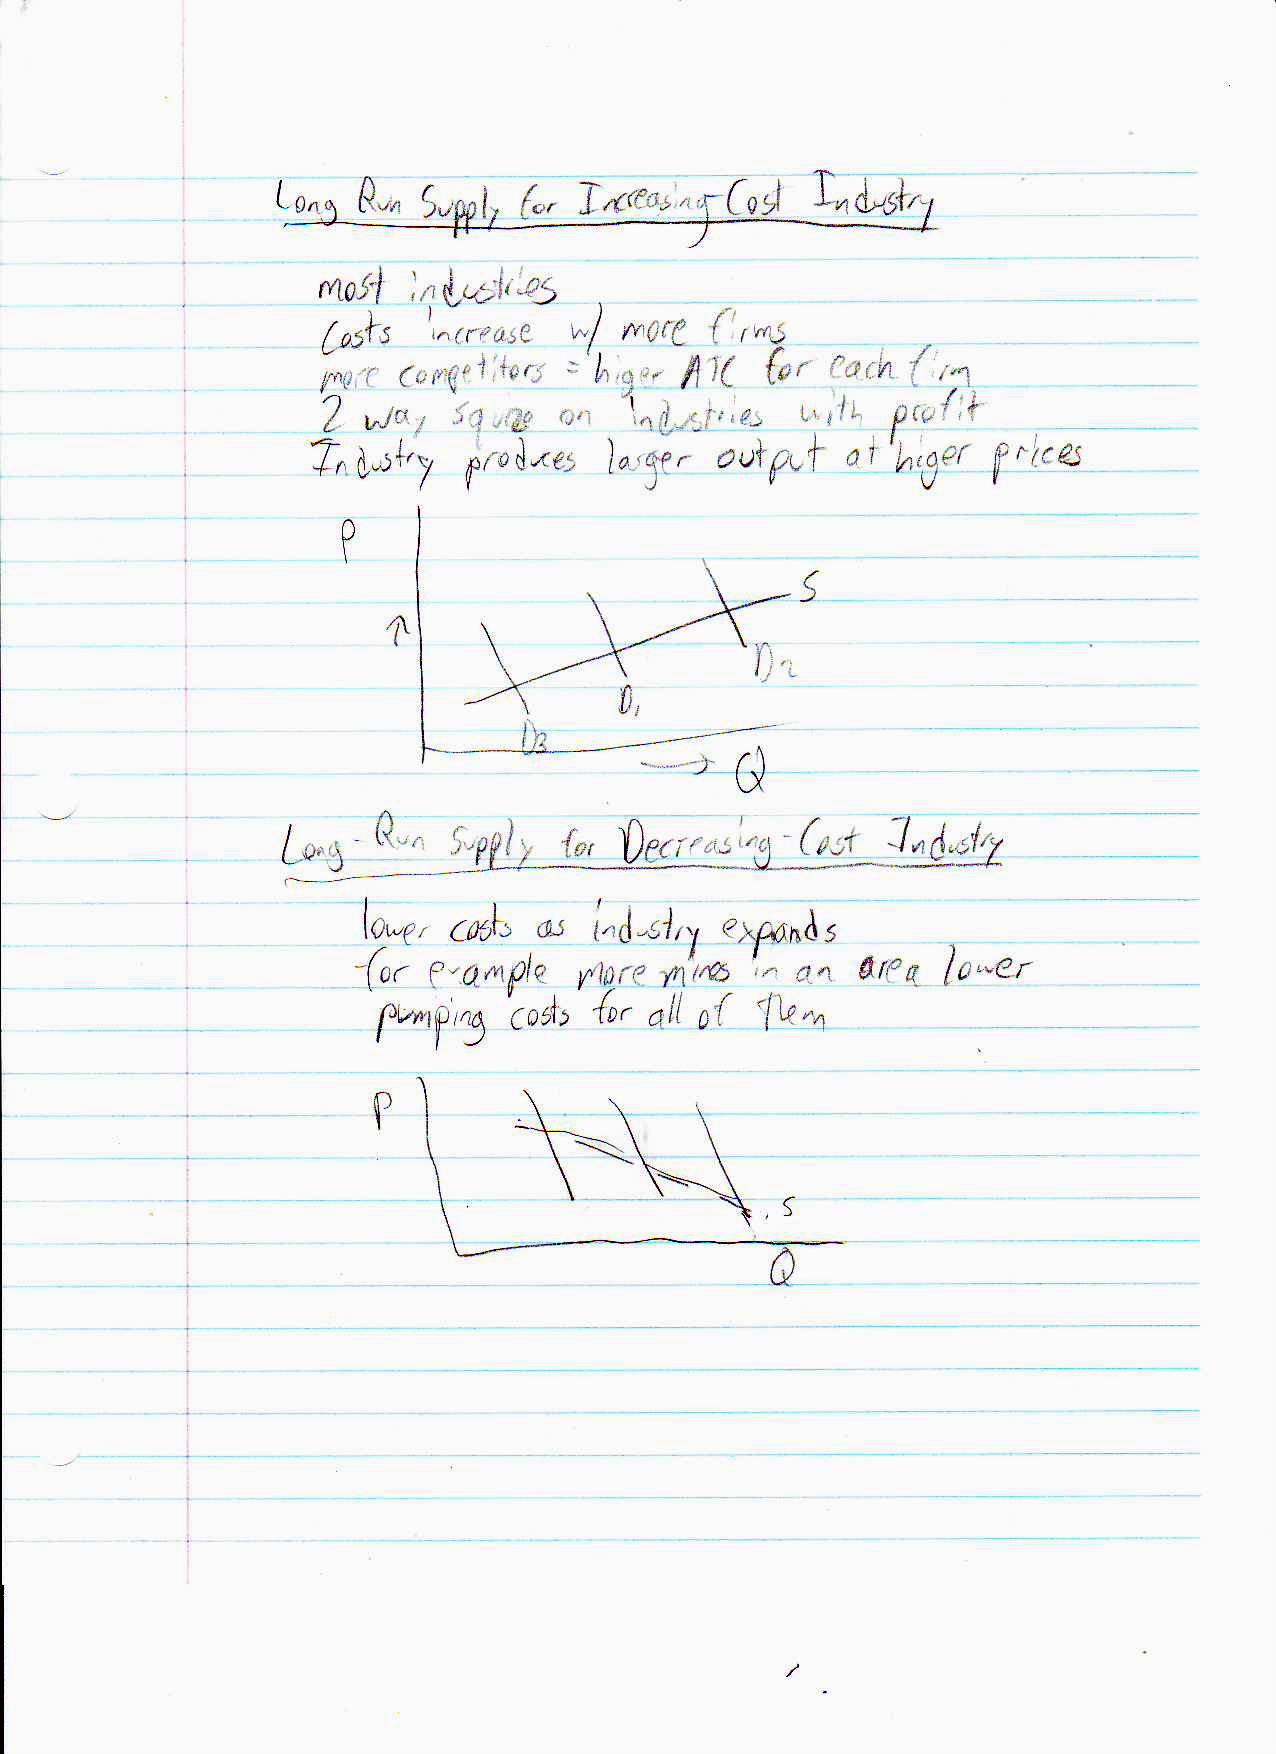 Long Run Supply for Increasing-Cost Industry
most industries
Costs increase w/ more firms
more competitors = higer ATC for each firm
2 way squze on industries with profit
Industry produces larger output at higer prices
P
S
D2
D1
D3
Q
Long-Run Supply for Decreasing-Cost Industry
lower costs as industry expands
for example more mines in an area lower
pumping costs for all of them
P
S
Q